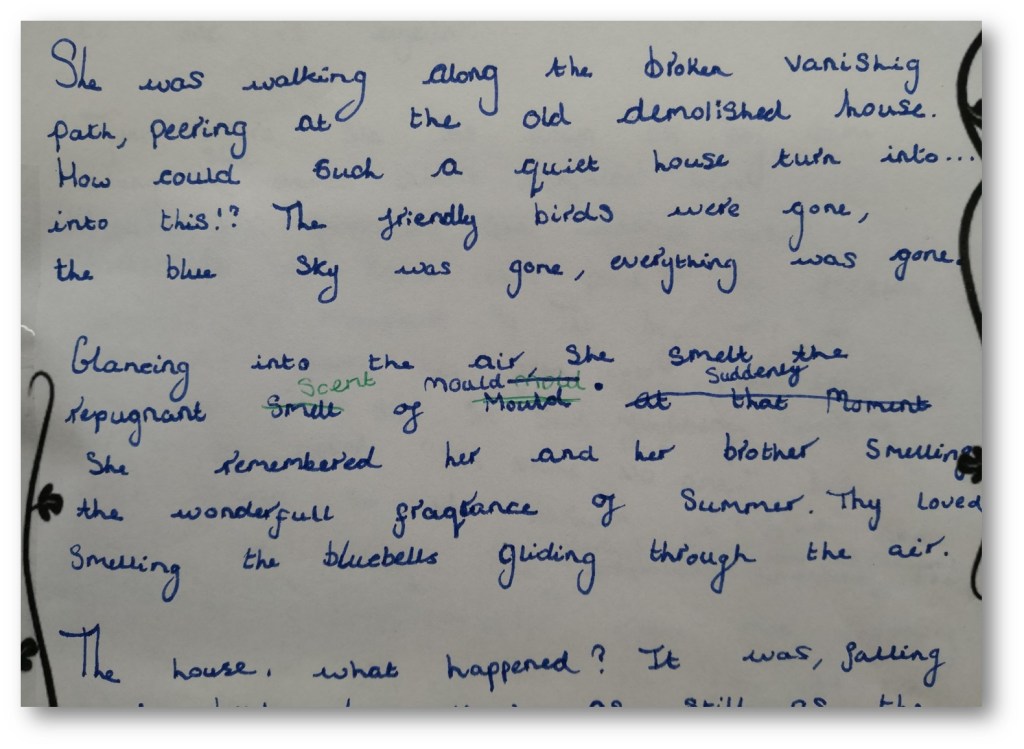 She was walking along the broken vanishig
path, peering at the old demolished house.
How could such a quiet house turn into...
into this!? The friendly birds were gone,
the blue sky was gone, everything was gone.
Glancing into the air, she smelt the
Scent mould mold . Suddenly
repugnant Smelt of Mould at that Moment
She remembered her and her brother Smelling
the wonderfull fragrance of Summer. Thy Loved
Smelling the bluebells gliding through the air.
The house. what happened? It was, falling
as still as the